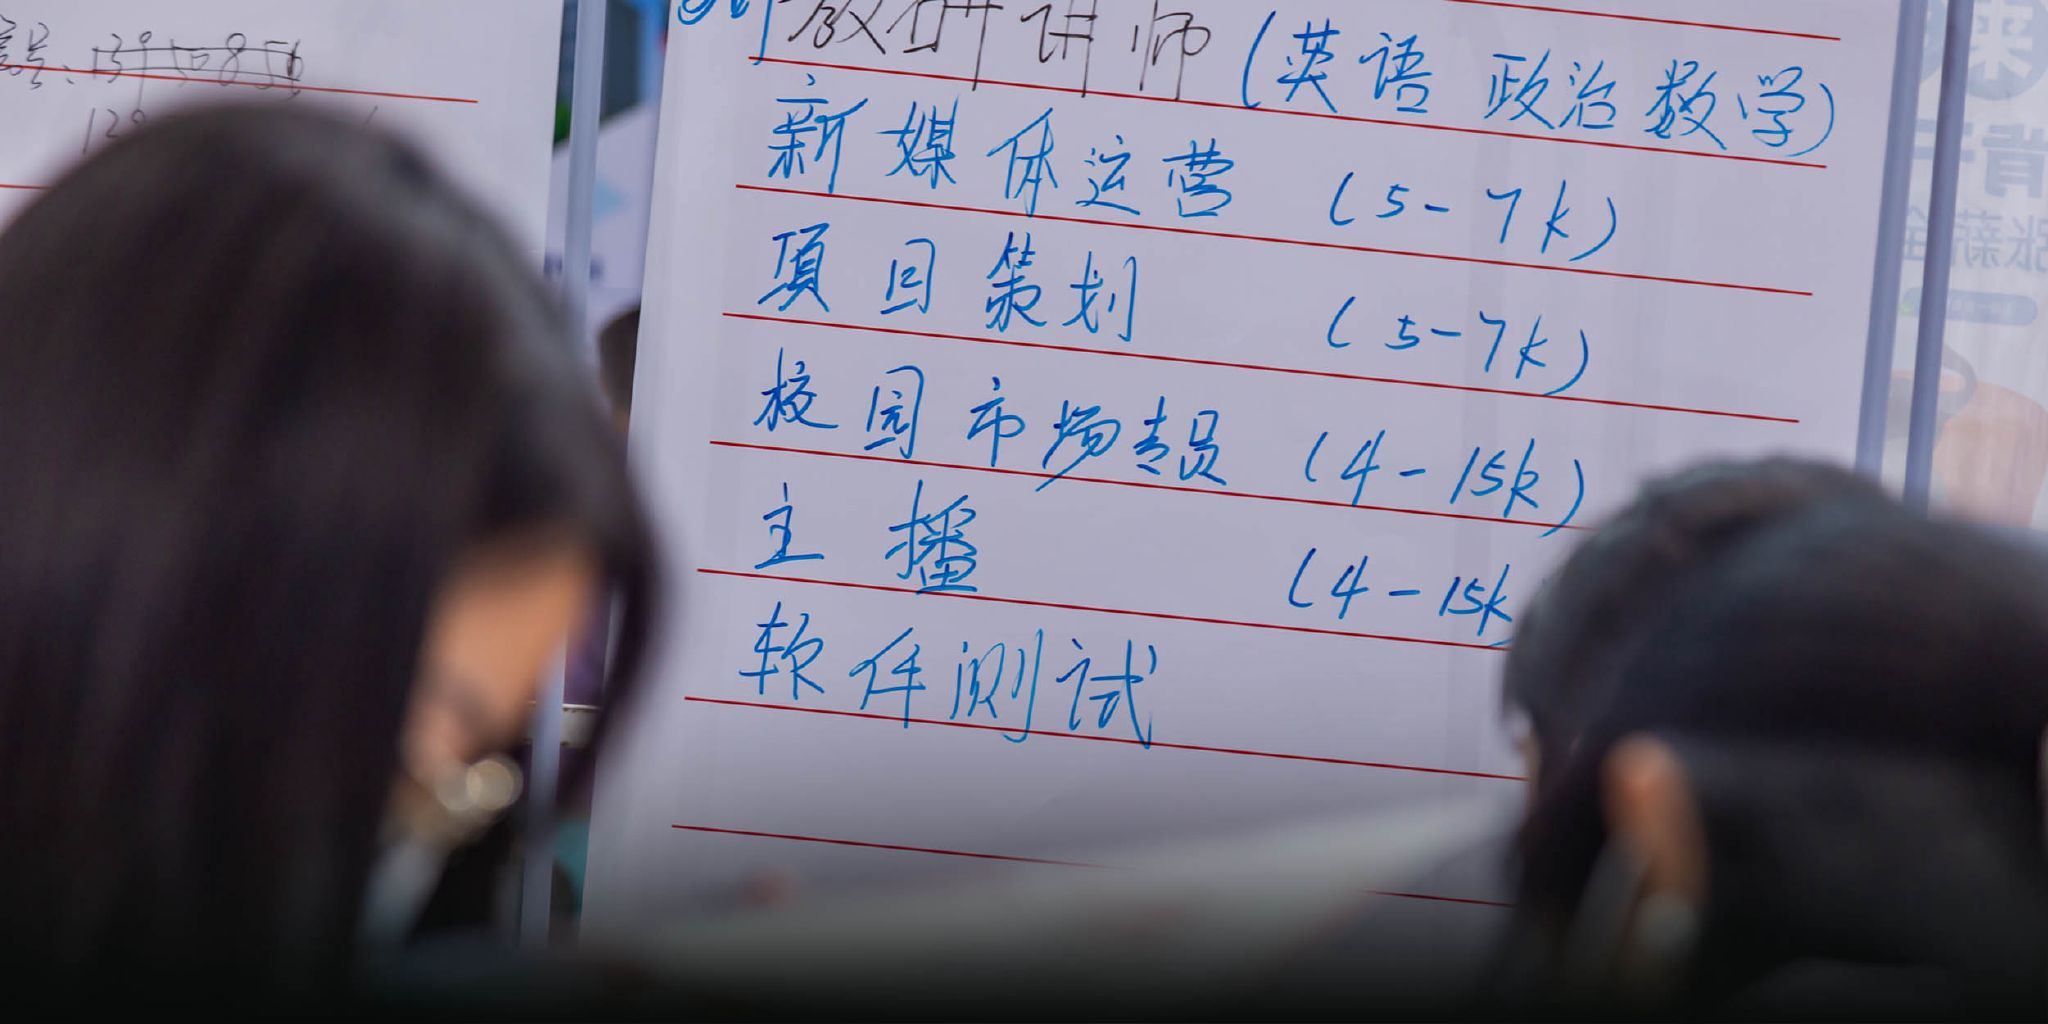 号: 13950856
129
教研讲师 (英语 政治 数学)
新媒体运营 (5-7k)
項目策划 (5-7k)
校园市场专员 (4-15k)
主播 (4-15k
软件测试